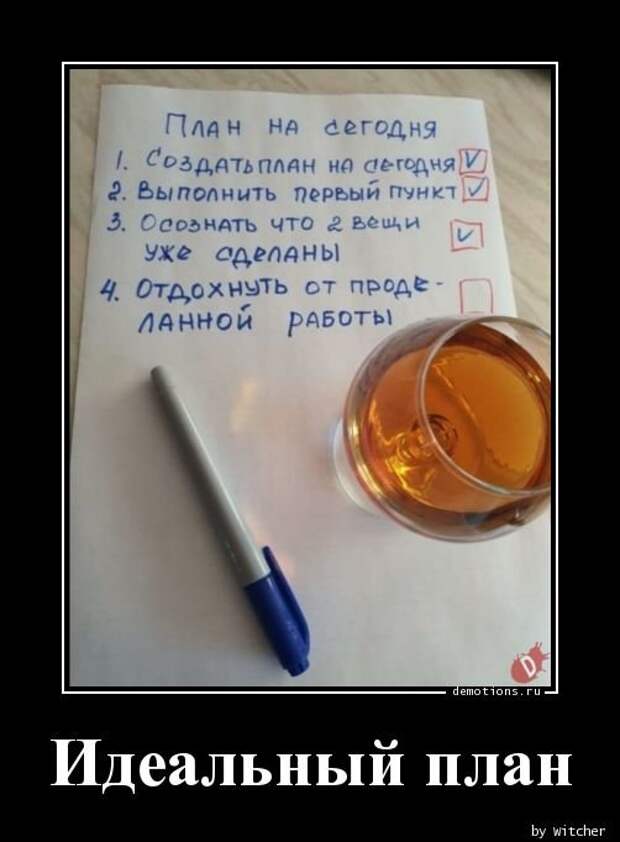 План на сегодня
1. Создать план на сегодня
2. Выполнить первый пункт
3. Осознать что 2 вещи
уже сделаны
4. Отдохнуть от проде-
ланной работы
D
demotions.ru
Идеальный план
by witcher